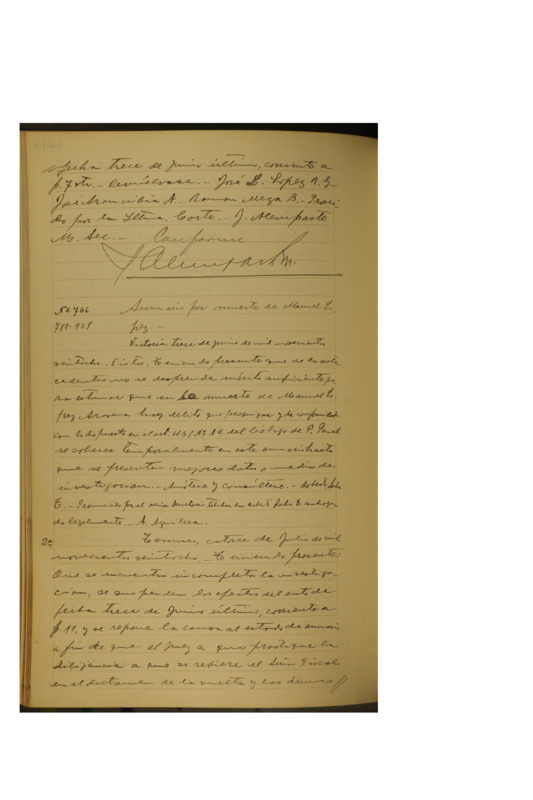 // fecha trece de junio último, corriente a
f. 7 vta. — Devuélvase. — José L. Lopez R. G. —
José Arancibia A. — Ramon Meza B. — Provei-
do por la Iltma. Corte. — J. Alemparte
M. Sec. — Conforme
JAlemparte M.
No 766
789-928
Sumario por muerte de Manuel Lo-
pez. —
Victoria, trece de junio de mil novecientos
veintocho. Vistos: Teniendo presente que de los ante
cedentes no se desprende mérito suficiente pa
ra estimar que en la muerte de Manuel Lo-
pez haya delito que perseguir y de conformidad
con lo dispuesto en el art. del Código de P. Penal
se sobresee temporalmente en este sumario hasta
que se presenten mejores datos o medios de
investigacion. — Anótese y consúltese. —
E. — Pronunciado por el señor
do legalmente. — A. Aguilera. —
2a
Temuco, catorce de Julio de mil
novecientos veintocho. — Teniendo presente:
Que se encuentra incompleta la investiga-
cion, se suspenden los efectos del auto de
fecha trece de Junio último, corriente a
f. 11, y se repone la causa al estado de sumario
a fin de que el Juez a quo practique la
diligencia a que se refiere el Señor Fiscal
en el dictamen de la vuelta y las demas //